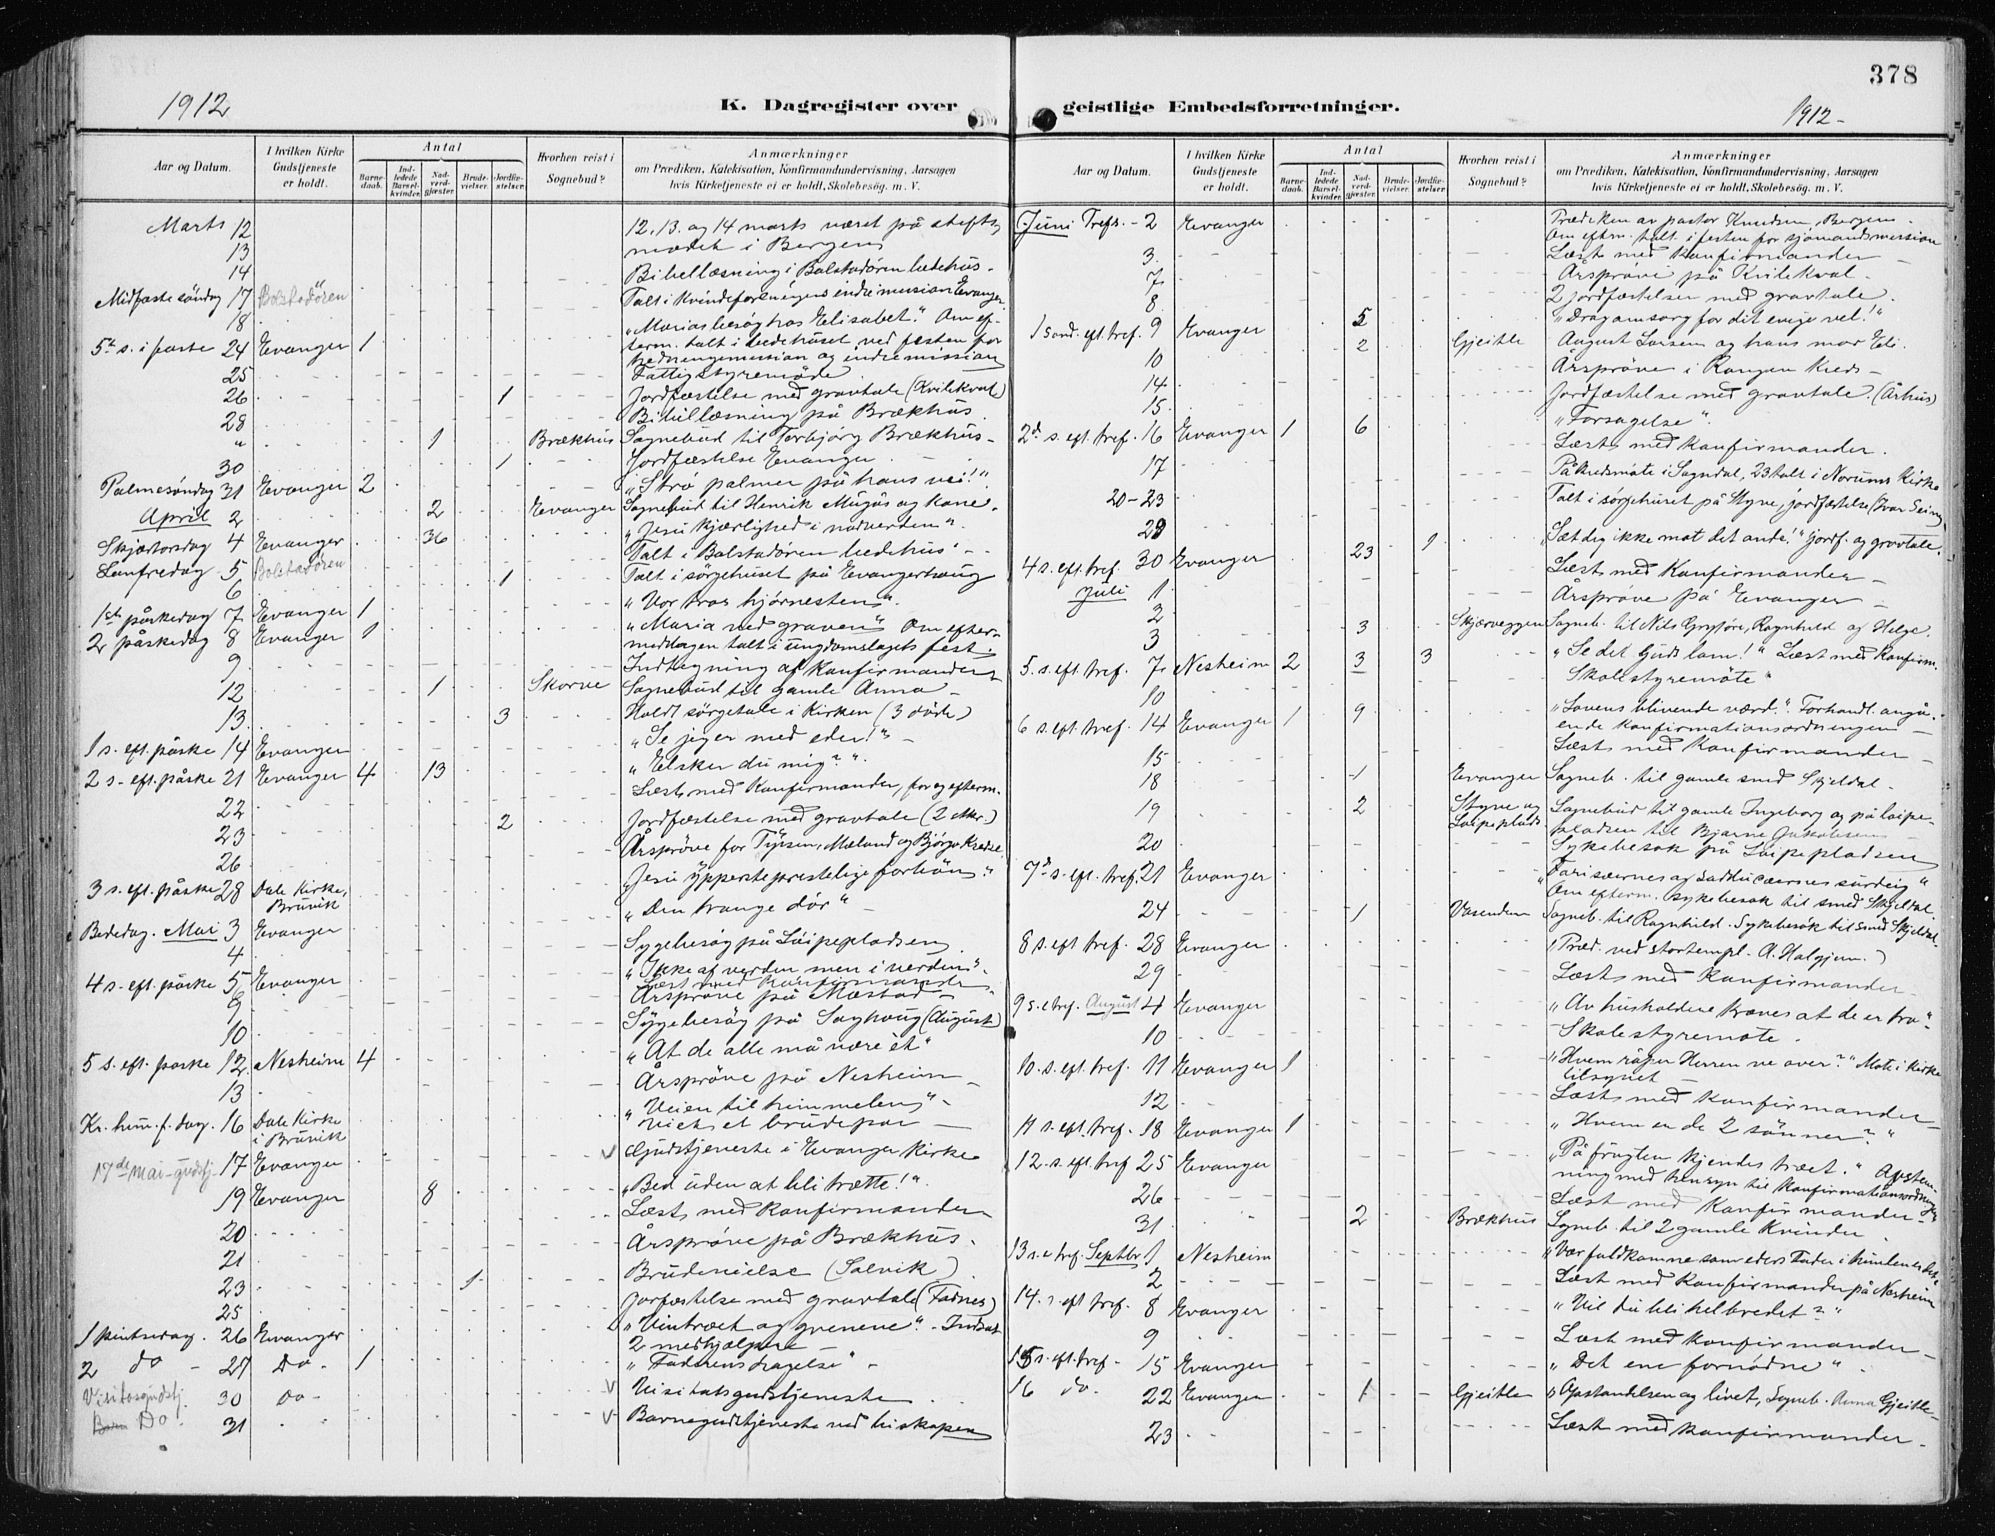 378
1912
K. Dagregister over geistlige Embedsforretninger.
1912
Aar og Datum.
I hvilken Kirke Gudstjeneste er holdt.
Antal
Barnedaab.
Indledede Barselkvinder.
Nadverdgjæster.
Brudevielser.
Jordfæstelser.
Hvorhen reist i Sognebud?
Anmærkninger
om Prædiken, Katekisation, Konfirmandundervisning, Aarsagen
hvis Kirketjeneste ei er holdt, Skolebesøg. m. V.
Marts 12 12, 13 og 14 marts været på stifts
13 mødet i Bergen
14 Bibellæsning i Bolstadøren bedehus.
Midfastesøndag 17 Bolstadøren Talt i Kvindeforeningens indremission Evanger
18 "Marias besøg hos Elisabet." Om ef-
5te s. i faste 24 Evanger 1 term. talt i bedehuset ved festen for
hedningemission og indremission
25 Fattigstyremøde
26 1 Jordfæstelse med gravtale (Kvilekval)
28 Bibellæsning på Brækhus
" 1 Brækhus Sognebud til Torbjørg Brækhus
30 1 Jordfæstelse Evanger
Palmesøndag 31 Evanger 2 "Strø palmer på hans vei!"
April 2 2 Evanger Sognebud til Henrik Mugås og kone.
Skjærtorsdag 4 Evanger 36 "Jesu kjærlighed i nadverden".
Lanfredag 5 Bolstadøren Talt i Bolstadøren bedehus
6 1 Talt i sørgehuset på Evangerhaug
1ste påskedag 7 Evanger 1 "Vor tros hjørnesten".
2 påskedag 8 Evanger 1 "Maria ved graven" Om efter-
9 middagen talt i ungdomslagets fest.
Indtegning af Konfirmander
12 1 Skorve Sognebud til gamle Anna
13 3 Holdt sørgetale i Kirken (3 døde)
1 s. eft. påske 14 Evanger "Se jeg er med eder!"
2 s. eft. påske 21 Evanger 4 13 "Elsker du mig?".
22 Læst med Konfirmander, for og efterm.
23 2 Jordfæstelse med gravtale (2 stkr.)
26 Årsprøve for Tyssen, Mæland og Bjørgo Kredse
3 s. eft. påske 28 Dale Kirke, Bruvik "Jesu ypperstepræstelige forbøn."
Bededag. Mai 3 Evanger "Den trange dør"
4 Sygebesøg på Løipepladsen
4 s. eft. påske 5 Evanger "Ikke af verden men i verden".
Læst med Konfirmander
9 Årsprøve på Mæstad
10 Sygebesøg på Saghaug (August)
5 s. eft. påske 12 Nesheim 4 "At de alle må være ét"
13 Årsprøve på Nesheim
Kr. him. f. dag. 16 Dale Kirke i Bruvik "Veien til himmelen"
Viet et brudepar
17de mai-gudstj. 17 Evanger Gudstjeneste i Evanger Kirke
19 Evanger 8 "Bed uden at bli trætte!".
20 Læst med Konfirmander
21 Årsprøve på Brækhus.
23 1 Brudevielse (Solvik)
25 Jorfæstelse med gravtale (Fadnes)
1 pintsedag. 26 Evanger "Vintræet og grenene".
2 medhjælpere
2 do 27 Do 1 "Faderens dragelse"
Visitasgudstj. 30 do Visitatsgudstjeneste
Do 31 Barnegudstjeneste ved biskopen
Aar og Datum.
I hvilken Kirke Gudstjeneste er holdt.
Antal
Barnedaab.
Indledede Barselkvinder.
Nadverdgjæster.
Brudevielser.
Jordfæstelser.
Hvorhen reist i Sognebud?
Anmærkninger
om Prædiken, Katekisation, Konfirmandundervisning, Aarsagen
hvis Kirketjeneste ei er holdt, Skolebesøg. m. V.
Juni Trefs. 2 Evanger Prædiken av pastor Knudsen, Bergen
Om efterm. talt i festen for sjømandsmission
3 Læst med Konfirmander
7 Årsprøve på Kvilekval.
8 2 jordfæstelser med gravtale.
1 sønd. eft. tref. 9 Evanger 5 "Drag omsorg for dit evige vel!"
10 2 Gjeitle August Larsen og hans mor Eli.
14 Årsprøve i Rangen Kreds
15 Jordfæstelse med gravtale. (Århus)
2d s. eft. tref. 16 Evanger 1 6 "Forsagelse".
17 Læst med Konfirmander.
20-23 På kredsmøte i Sogndal, 23 talt i Norums Kirke
29 Talt i sørgehuset på Styve, jordfæstelse (Ivar Seim)
4 s. eft. tref. 30 Evanger 23 1 "Sæt dig ikke mot det onde!" jordf. og gravtale.
Juli 1 Læst med Konfirmander
2 Årsprøve på Evanger
3 3 Skjærveggen Sogneb. til Nils Grytøre, Ragnhild og Helge.
5. s. eft. tref. 7 Nesheim 2 3 3 "Se det Guds lam!" Læst med Konfirm.
10 Skolestyremøte
6 s. eft. tref. 14 Evanger 1 9 "Lovens blivende værd." Forhandl. angå-
ende Konfirmationsordningen
15 Læst med Konfirmander
18 1 Evanger Sogneb. til gamle smed Skjeldal.
19 2 Styve og Løipeplads Sognebud til gamle Ingeborg og på løipe-
pladsen til Bjarne Jakobsen
20 Sykebesøk på Løipepladsen
7de s. eft. tref. 21 Evanger "Farisæernes og Sadducæernes surdeig"
Om efterm. sykebesøk til smed Skjeldal.
24 1 Vasenden Sogneb. til Ragnhild. Sykebesøk til smed Skjeldal.
8 s. eft tref. 28 Evanger (Præd. ved stortempl. A. Halgjem.)
29 Læst med Konfirmander
9 s. e tref. August 4 Evanger "Av husholdere kræves at de er tro".
10 Skolestyremøte.
10. s. eft. tref. 11 Evanger 1 "Hvem råper Herren ve over?" Møte i Kirke
tilsynet
12 Læst med Konfirmander
11 s. eft. tref. 18 Evanger 1 "Hvem er de 2 sønner?"
12. s. eft. tref 25 Evanger "På frugten kjendes træet." Avstem-
ning med hensyn til Konfirmationsordningen
26 Læst med Konfirmander
31 2 Brækhus Sogneb. til 2 gamle Kvinder
13 s. e tref. Septbr 1 Nesheim "Vær fuldkomne som eders Fader i himlen er det".
2 Læst med Konfirmander på Nesheim
14. s. eft tref. 8 Evanger "Vil du bli helbredet?"
9 Læst med Konfirmander
15 s. eft. tref. 15 Evanger "Det ene fornødne".
16 do. 22 Evanger 1 Gjeitle "Opstandelsen og livet, Sogneb. Anna Gjeitle
23 Læst med Konfirmander